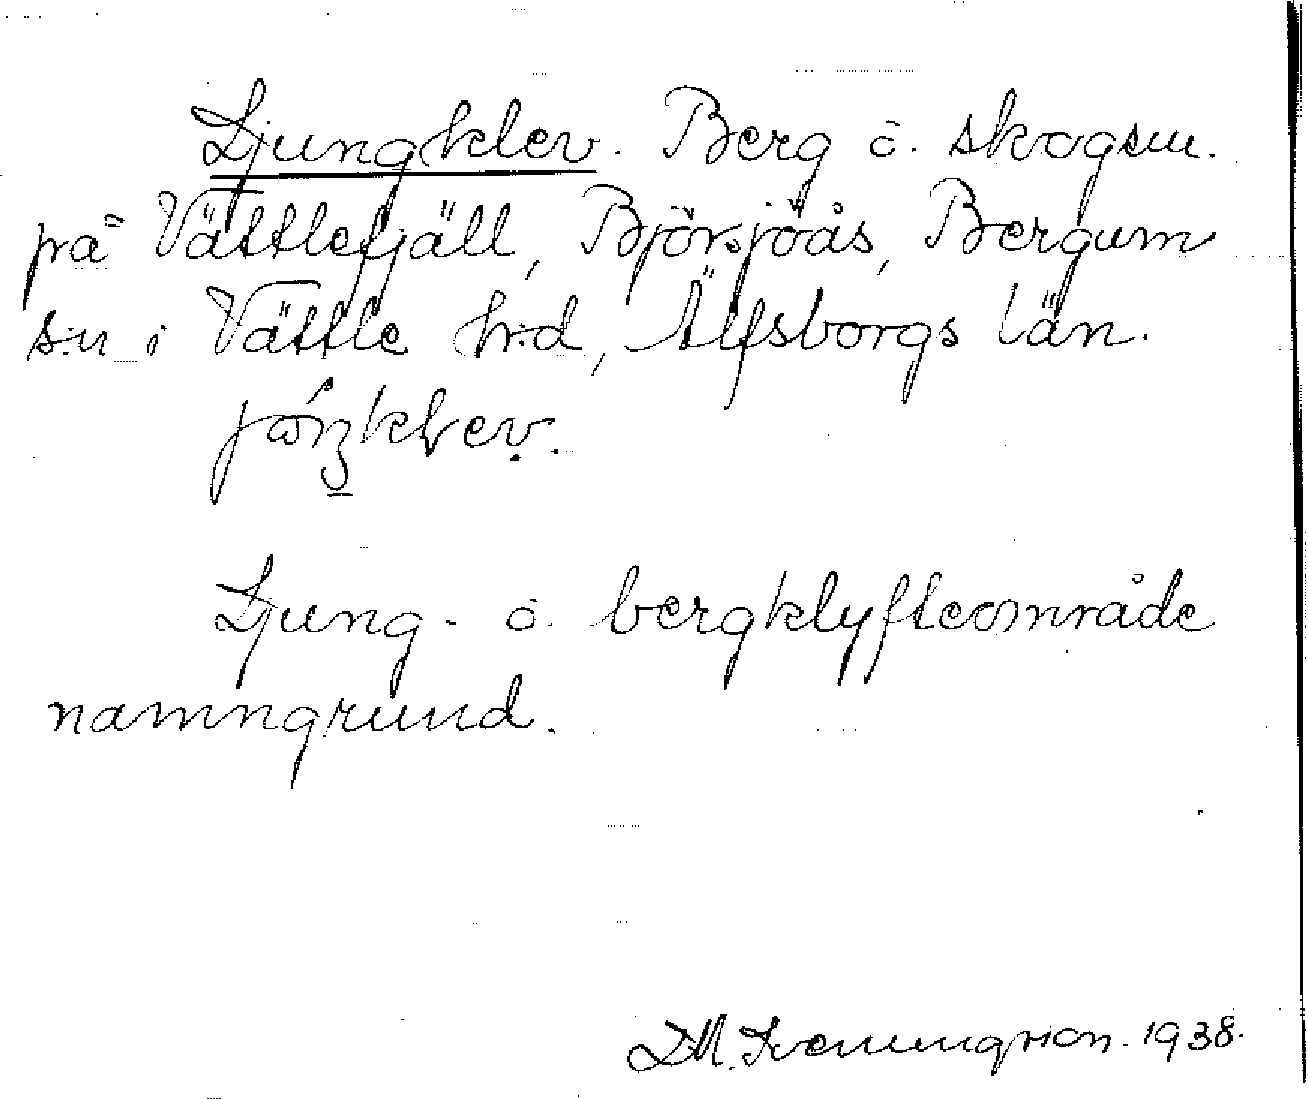 Ljungklev. Berg o. skogsm.
på Vättlefjäll, Björsjöås, Bergum
s:n i Vättle h:d, Älfsborgs län.
Ljung- o. bergklyfteområde
namngrund.
1938.